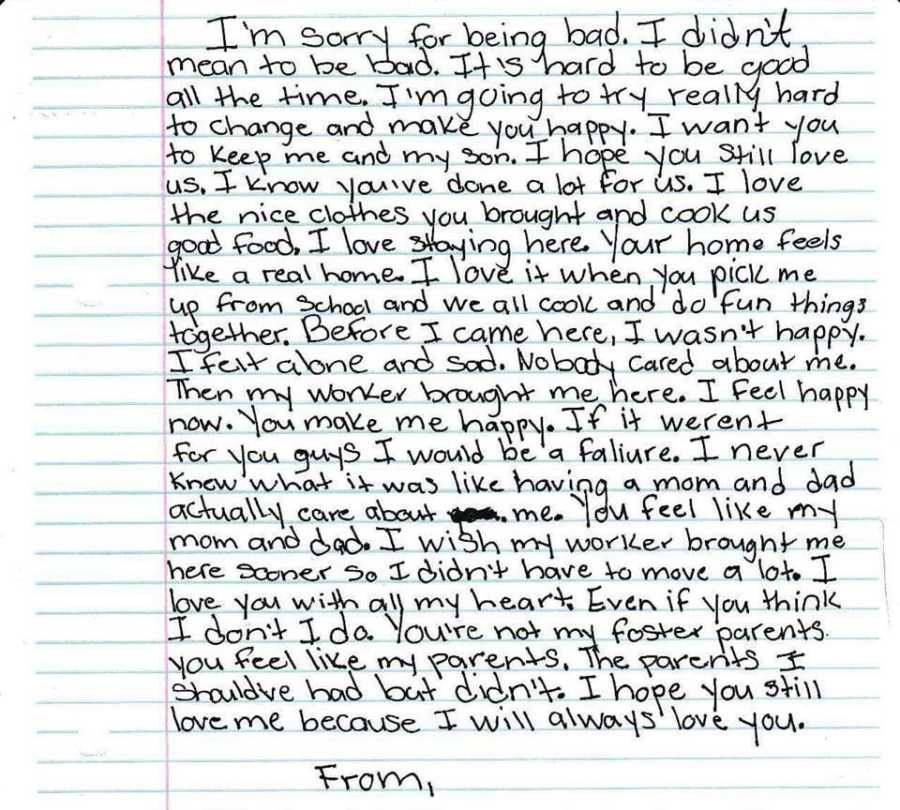 I'm sorry for being bad. I didn't
mean to be bad. It's hard to be good
all the time. I'm going to try really hard
to change and make you happy. I want you
to keep me and my son. I hope you still love
us. I know you've done a lot for us. I love
the nice clothes you brought and cook us
good food. I love staying here. Your home feels
like a real home. I love it when you pick me
up from school and we all cook and do fun things
together. Before I came here, I wasn't happy.
I felt alone and sad. Nobody cared about me.
Then my worker brought me here. I feel happy
now. You make me happy. If it werent
for you guys I would be a faliure. I never
knew what it was like having a mom and dad
actually care about me. You feel like my
mom and dad. I wish my worker brought me
here sooner so I didn't have to move a lot. I
love you with all my heart. Even if you think
I don't I do. You're not my foster parents.
you feel like my parents. The parents I
should've had but didn't. I hope you still
love me because I will always love you.
From,